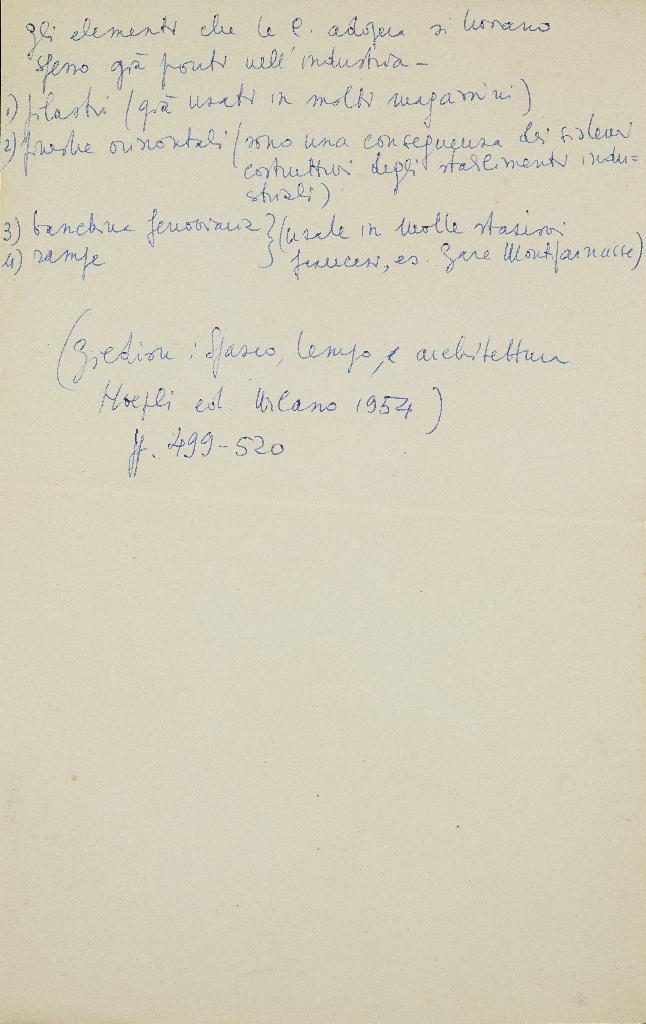 gli elementi che le C. adopera si trovano
spesso già pronti nell'industria -
1) pilastri (già usati in molti magazzini)
2) finestre orizzontali (sono una conseguenza dei sistemi
costruttivi degli stabilimenti indu=
striali)
3) banchina ferroviaria } (usate in molte stazioni
4) rampe } francesi, es. Gare Montparnasse)
(Giedion : Spazio, tempo, e architettura
Hoepli ed. Milano 1954)
pp. 499-520